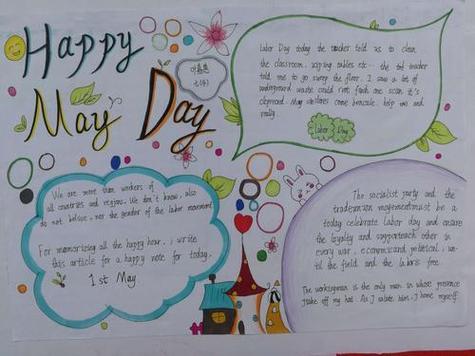 Happy
May Day
Labor Day today the teacher told us to clean
the classroom, wiping tables etc. the teacher
told me to go sweep the floor. I saw a lot of
underground waste could not find one scan it's
cleaned. May
really.
Labor Day
We are more than workers of
all countries and regions. We don't know, also
do not believe, nor the gender of the labor movement
For memorizing all the happy hour, i write
this article for a happy note for today.
1st May
The socialist party and the
tradeunion movement must be a
today celebrate labor day and ensure
the loyalty and support each other in
every war, economic and political, un-
til the field and the labor is free.
The workingman is the only man in whose presence
I take off my hat. As I salute him, I honor myself.